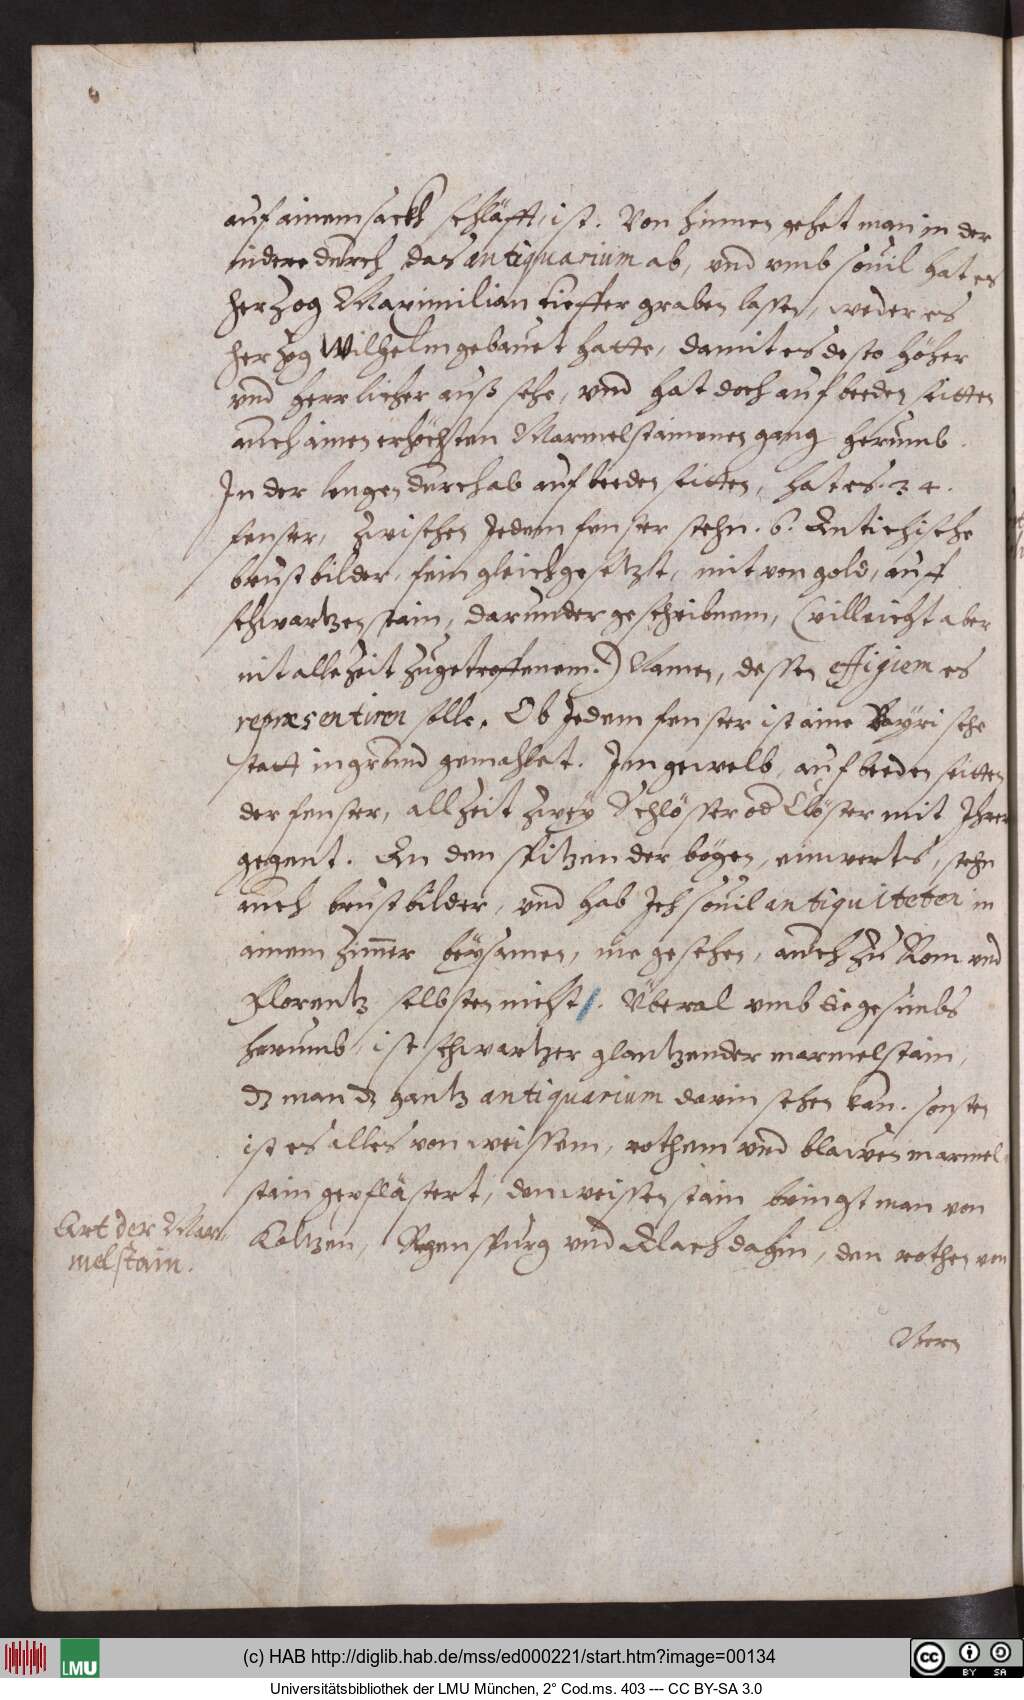 auf ainem sackh schläfft, ist. Von hinnen gehet man in der
nidere durch das antiquarium ab, und umb souil hat es
herzog Maximilian tieffer graben lassen, weder es
herzog Wilhelm gebauet hatte, damit es desto höher
und herrlicher auß sehe, und hat doch auf beeden seitten
auch ainen erhöchten Marmelstainenen gang herumb.
In der lengen durchab auf beeden seitten, hat es. 34.
fenster, zwischen Jedem fenster stehn. 6. Antichische
brustbilder, fein gleich gesetzt, mit von gold, auff
schwartzen stain, darunder geschribnem, (villeicht aber
nit allezeit zugetroffenem.) Namen, dessen effigiem es
repræsentiren solle. Ob Jedem fenster ist aine Bayrische
statt in grund gemahlet. Im gewelb, auf beeden seitten
der fenster, allzeit zwey Schlösser od Clöster mit Ihrer
gegent. An den spitzen der bögen, einwerts, stehn
auch brustbilder, und hab Ich souil antiquiteten in
ainem zimmer beysamen, nie gesehen, auch zu Rom und
Florentz selbsten nicht. Überal umb die gesimbs
herumb, ist schwartzer glantzender marmelstain,
dz man dz gantz antiquarium darin sehen kan. sonsten
ist es alles von weissem, rothem und blawen marmel
stain gepflästert, den weissen stain bringt man von
Koltzen, Regenspurg und Alach dahin, den rothen von
Art der Mar
melstain.
(c) HAB http://diglib.hab.de/mss/ed000221/start.htm?image=00134
Universitätsbibliothek der LMU München, 2° Cod.ms. 403 --- CC BY-SA 3.0
LMU
cc BY SA